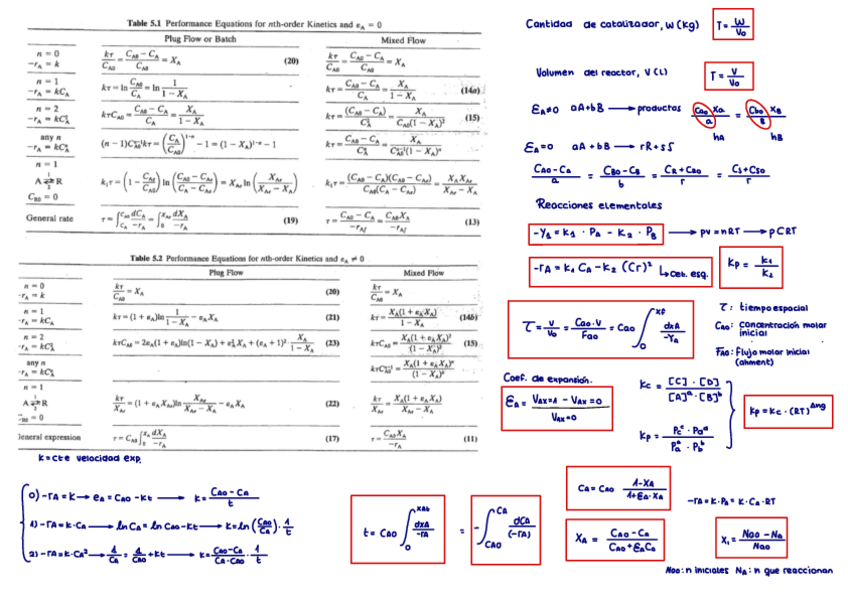 Table 5.1 Performance Equations for nth-order Kinetics and ε_A = 0
Plug Flow or Batch
Mixed Flow
n = 0
-r_A = k
kτ/C_A0 = (C_A0 - C_A)/C_A0 = X_A (20)
kτ/C_A0 = (C_A0 - C_A)/C_A0 = X_A
n = 1
-r_A = kC_A
kτ = ln C_A0/C_A = ln 1/(1 - X_A)
kτ = (C_A0 - C_A)/C_A = X_A/(1 - X_A) (14a)
n = 2
-r_A = kC_A²
kτC_A0 = (C_A0 - C_A)/C_A = X_A/(1 - X_A)
kτ = (C_A0 - C_A)/C_A² = X_A/(C_A0(1 - X_A)²) (15)
any n
-r_A = kC_A^n
(n - 1)C_A0^(n-1)kτ = (C_A/C_A0)^(1-n) - 1 = (1 - X_A)^(1-n) - 1
kτ = (C_A0 - C_A)/C_A^n = X_A/(C_A0^(n-1)(1 - X_A)^n)
n = 1
A ⇌ R
C_R0 = 0
k₁τ = (1 - C_Ae/C_A0) ln((C_A0 - C_Ae)/(C_A - C_Ae)) = X_Ae ln(X_Ae/(X_Ae - X_A))
k₁τ = (C_A0 - C_A)(C_A0 - C_Ae)/(C_A0(C_A - C_Ae)) = X_A X_Ae/(X_Ae - X_A)
General rate
τ = ∫ dC_A/-r_A = C_A0 ∫ dX_A/-r_A (19)
τ = (C_A0 - C_A)/-r_Af = C_A0X_A/-r_Af (13)
Table 5.2 Performance Equations for nth-order Kinetics and ε_A ≠ 0
Plug Flow
Mixed Flow
n = 0
-r_A = k
kτ/C_A0 = X_A (20)
kτ/C_A0 = X_A
n = 1
-r_A = kC_A
kτ = (1 + ε_A) ln 1/(1 - X_A) - ε_A X_A (21)
kτ = X_A(1 + ε_A X_A)/(1 - X_A) (14b)
n = 2
-r_A = kC_A²
kτC_A0 = 2ε_A(1 + ε_A) ln(1 - X_A) + ε_A² X_A + (ε_A + 1)² X_A/(1 - X_A) (23)
kτC_A0 = X_A(1 + ε_A X_A)²/(1 - X_A)² (15)
any n
-r_A = kC_A^n
kτC_A0^(n-1) = X_A(1 + ε_A X_A)^n/(1 - X_A)^n
n = 1
A ⇌ R
C_R0 = 0
kτ/X_Ae = (1 + ε_A X_Ae) ln X_Ae/(X_Ae - X_A) - ε_A X_A (22)
kτ/X_Ae = X_A(1 + ε_A X_A)/(X_Ae - X_A)
General expression
τ = C_A0 ∫₀^X_A dX_A/-r_A (17)
τ = C_A0 X_A/-r_A (11)
K = cte velocidad exp.
0) -rA = K → eA = CAo - Kt → K = (CAo - CA)/t
1) -rA = K·CA → ln CA = ln CAo - Kt → K = ln(CAo/CA) · 1/t
2) -rA = K·CA² → 1/CA = 1/CAo + Kt → K = (CAo - CA)/(CA·CAo) · 1/t
Cantidad de catalizador, W (Kg) T = W/Vo
Volumen del reactor, V (L) T = V/Vo
εA≠0 aA+bB → productos CAo XA/a = CBo XB/B
hA hB
εA=0 aA+bB → rR+sS
(CAo - CA)/a = (CBo - CB)/b = (CR + CRo)/r = (CS + CSo)/r
Reacciones elementales
-YA = K1 · PA - K2 · PB → pv = nRT → pCRT
-rA = K1 CA - K2 (Cr)² ↳ Cet. esq.
Kp = K1/K2
τ = V/Vo = CAo·V/FAo = CAo ∫₀^Xf dxA/-YA
τ: tiempo espacial
CAo: concentración molar inicial
FAo: Flujo molar inicial (aliment)
Coef. de expansión.
εA = (VAX=1 - VAX=0)/VAX=0
Kc = [C]·[D]/[A]^a·[B]^b
Kp = Pc^c · PD^d/PA^a · PB^b
Kp = Kc · (RT)^Δng
t = CAo ∫₀^XAt dxA/-rA = -∫_CAo^CA dCA/(-rA)
CA = CAo (1 - XA)/(1 + εA·XA)
-rA = K·PA = K·CA·RT
XA = (CAo - CA)/(CAo + εA CA)
X₁ = (NAo - NA)/NAo
NAo: n iniciales NA: n que reaccionan